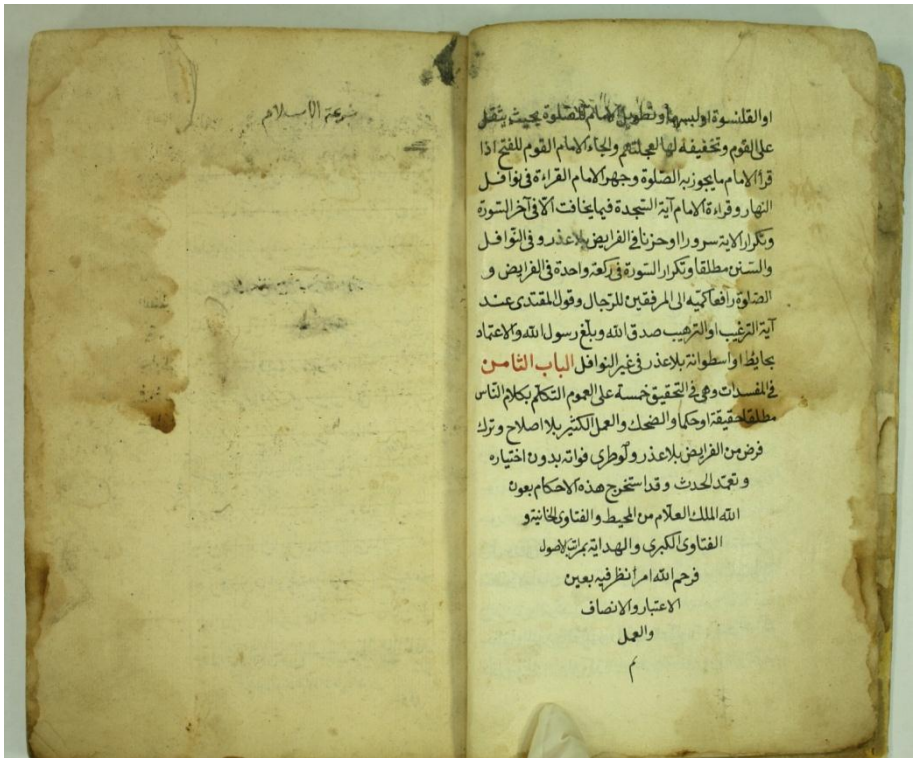 او القلنسوة او لبسهما وتطويل الامام الصلوة بحيث يثقل
على القوم وتخفيفه لها لعجلتهم والجاء الامام القوم للفتح اذا
قرأ الامام ما يجوز به الصلوة وجهر الامام القراءة فى نوافل
النهار وقراءة الامام آية السجدة فيما يخافت الا فى آخر السورة
وتكرار الاية سرورا او حزنا فى الفرايض بلا عذر وفى النوافل
والسنن مطلقا وتكرار السورة فى ركعة واحدة فى الفرايض و
الصلوة رافعا كميه الى المرفقين للرجال وقول المقتدى عند
آية الترغيب او الترهيب صدق الله وبلغ رسول الله والاعتماد
بحايط او اسطوانة بلا عذر فى غير النوافل الباب الثامن
فى المفسدات وهى فى التحقيق خمسة على العموم التكلم بكلام الناس
مطلقا حقيقة او حكما والضحك والعمل الكثير بلا اصلاح وترك
فرض من الفرايض بلا عذر ولو طرى فواته بدون اختياره
وتعمد الحدث وقد استخرج هذه الاحكام بعون
الله الملك العلام من المحيط والفتاوى الخانية و
الفتاوى الكبرى والهداية
فرحم الله امرأ نظر فيه بعين
الاعتبار والانصاف
والعمل
م
شرعة الاسلام